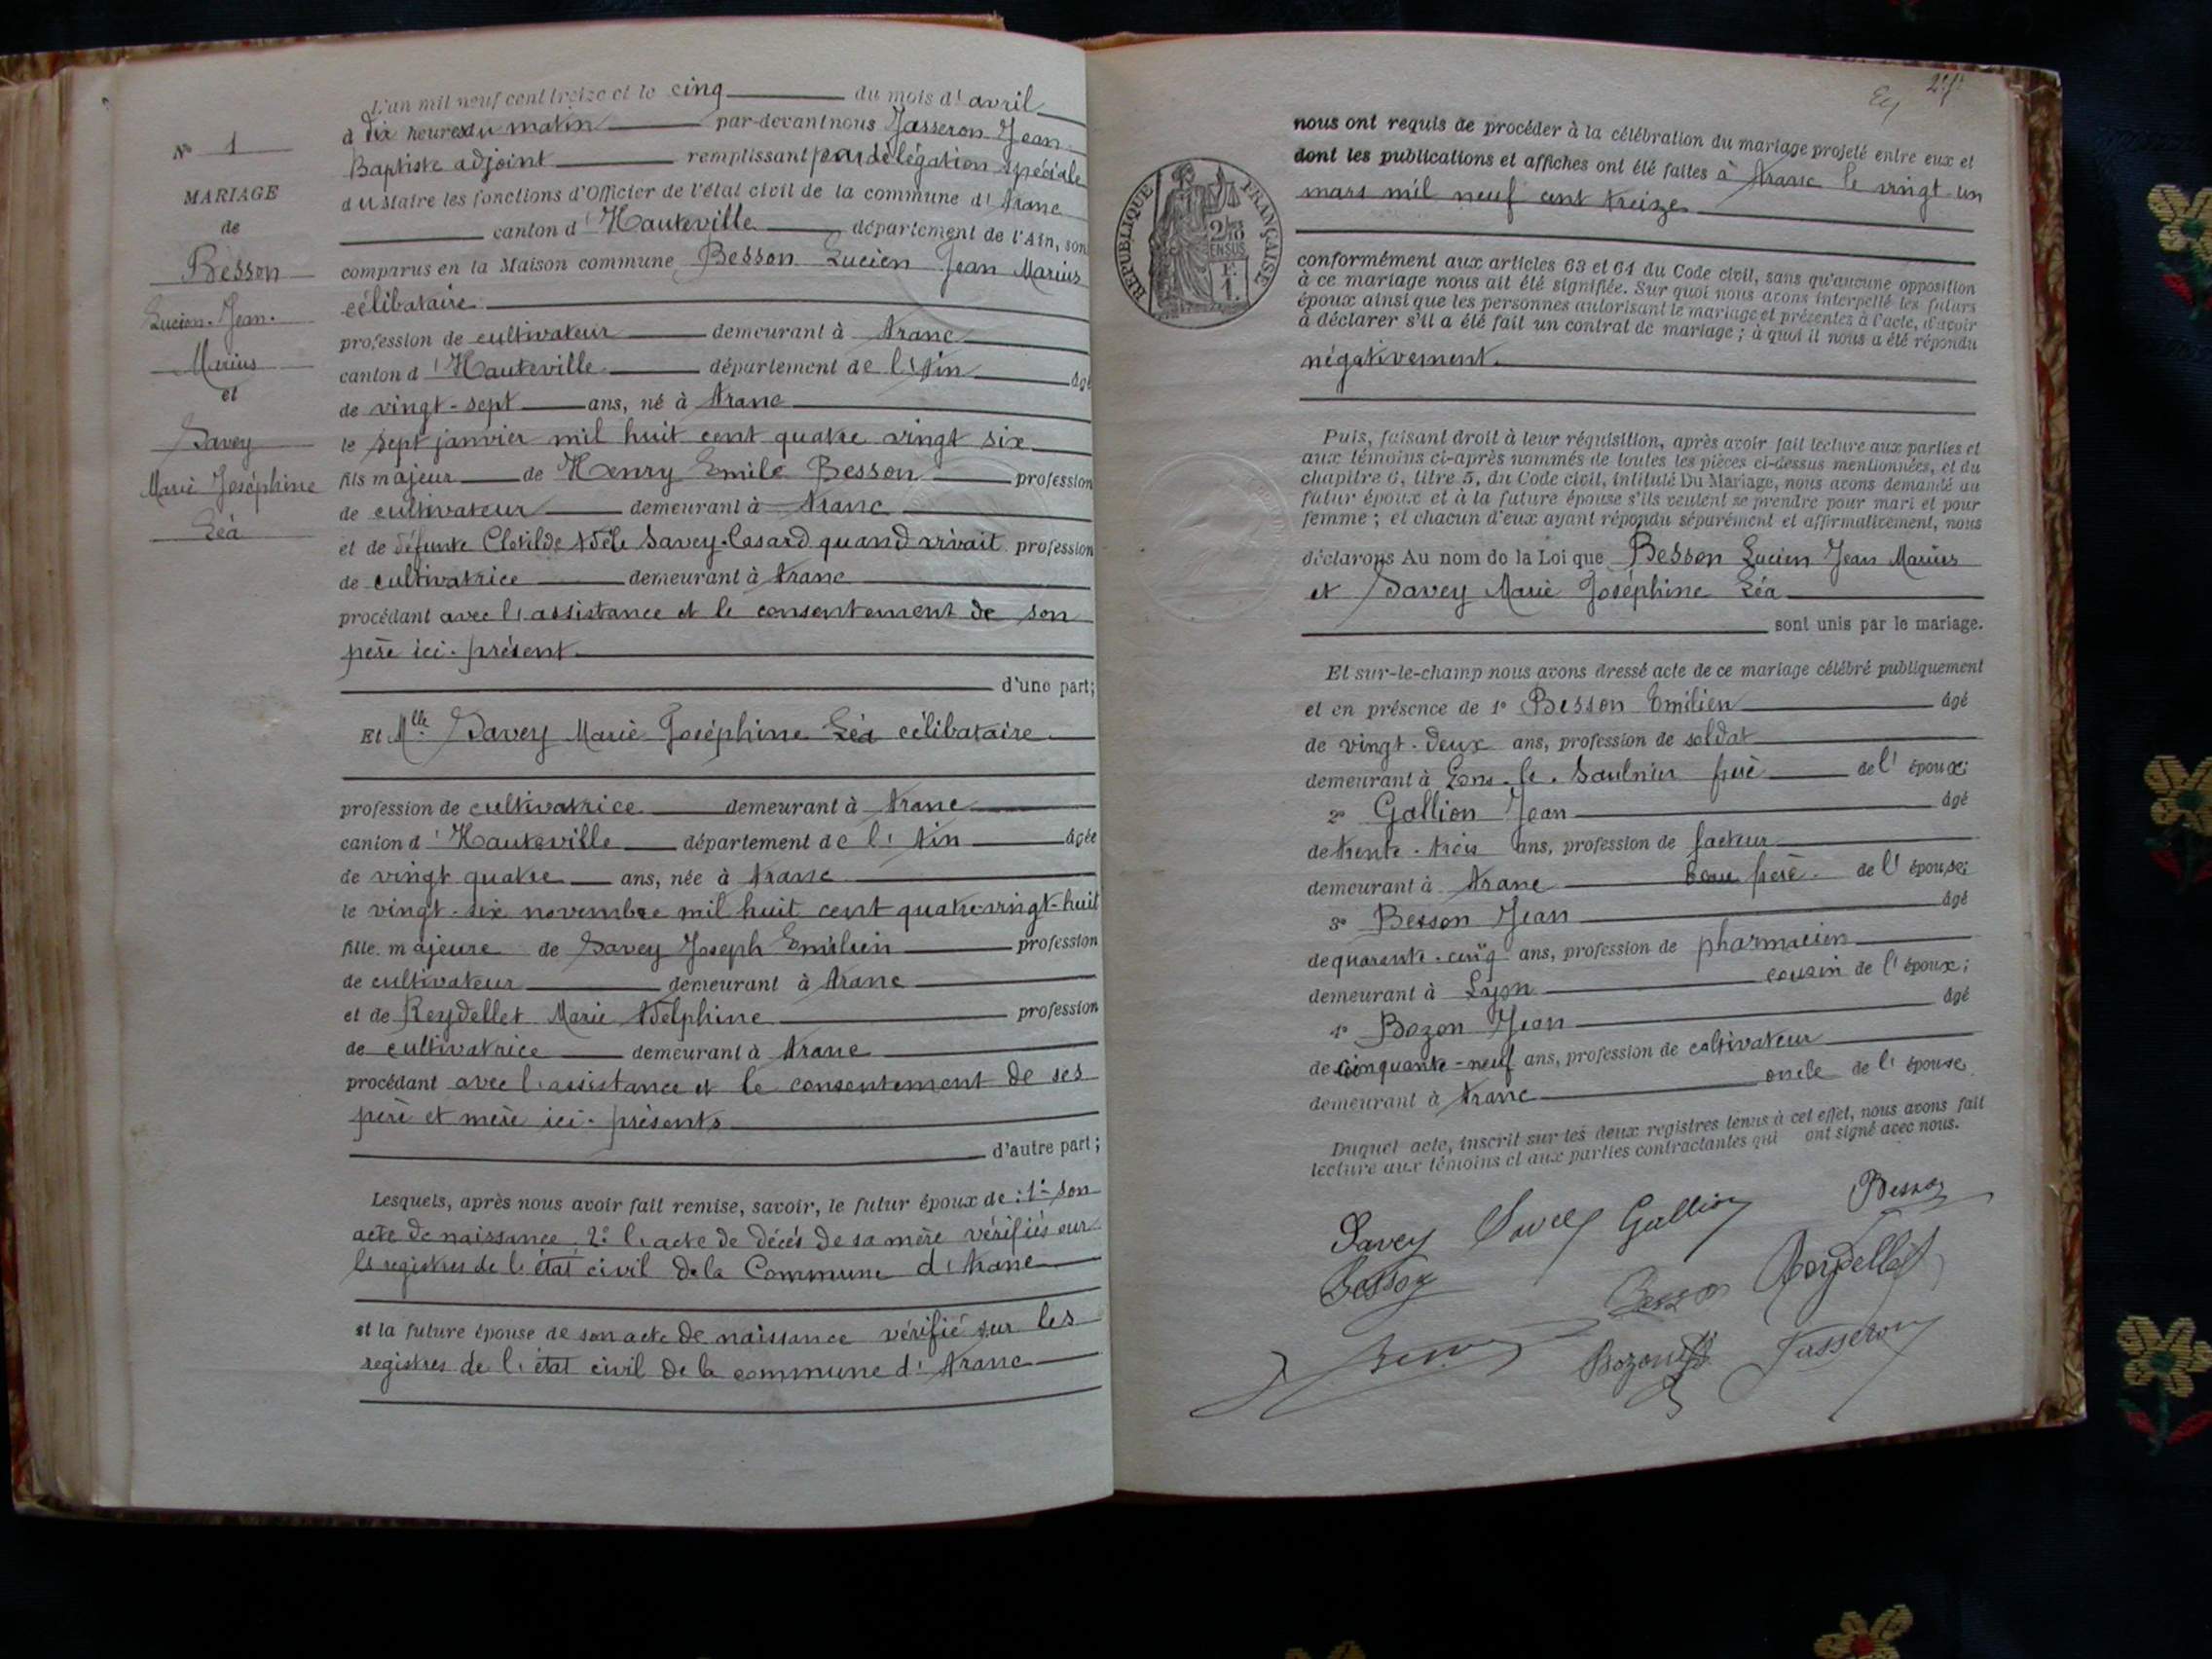 N° 1
MARIAGE
de
Besson
Lucien. Jean.
Marius
et
Savey
Marie Joséphine
Léa
L'an mil neuf cent treize et le cinq du mois d'avril
à dix heures du matin par-devant nous Jasseron Jean
Baptiste adjoint remplissant par délégation spéciale
du Maire les fonctions d'Officier de l'état civil de la commune d'Aranc
canton d'Hauteville département de l'Ain, son
comparus en la Maison commune Besson Lucien Jean Marius
célibataire
profession de cultivateur demeurant à Aranc
canton d'Hauteville département de l'Ain âgé
de vingt-sept ans, né à Aranc
le sept janvier mil huit cent quatre vingt six
fils majeur de Henry Emile Besson profession
de cultivateur demeurant à Aranc
et de défunte Clotilde Adèle Savey-Casard quand vivait profession
de cultivatrice demeurant à Aranc
procédant avec l'assistance et le consentement de son
père ici-présent
d'une part;
Et Mlle Savey Marie Joséphine Léa célibataire
profession de cultivatrice demeurant à Aranc
canton d'Hauteville département de l'Ain âgée
de vingt quatre ans, née à Aranc
le vingt-six novembre mil huit cent quatre-vingt-huit
fille majeure de Savey Joseph Emilien profession
de cultivateur demeurant à Aranc
et de Reydellet Marie Adelphine profession
de cultivatrice demeurant à Aranc
procédant avec l'assistance et le consentement de ses
père et mère ici-présents
d'autre part;
Lesquels, après nous avoir fait remise, savoir, le futur époux de: 1° son
acte de naissance 2° l'acte de décès de sa mère vérifiés sur
les registres de l'état civil de la Commune d'Aranc
et la future épouse de son acte de naissance vérifié sur les
registres de l'état civil de la commune d'Aranc
nous ont requis de procéder à la célébration du mariage projeté entre eux et
dont les publications et affiches ont été faites à Aranc le vingt-un
mars mil neuf cent treize
REPUBLIQUE FRANÇAISE
2/10
EN SUS
F.
1.
conformément aux articles 63 et 64 du Code civil, sans qu'aucune opposition
à ce mariage nous ait été signifiée. Sur quoi nous avons interpellé les futurs
époux ainsi que les personnes autorisant le mariage et présentes à l'acte, d'avoir
à déclarer s'il a été fait un contrat de mariage; à quoi il nous a été répondu
négativement.
Puis, faisant droit à leur réquisition, après avoir fait lecture aux parties et
aux témoins ci-après nommés de toutes les pièces ci-dessus mentionnées, et du
chapitre 6, titre 5, du Code civil, intitulé Du Mariage, nous avons demandé au
futur époux et à la future épouse s'ils veulent se prendre pour mari et pour
femme; et chacun d'eux ayant répondu séparément et affirmativement, nous
déclarons Au nom de la Loi que Besson Lucien Jean Marius
et Savey Marie Joséphine Léa
sont unis par le mariage.
Et sur-le-champ nous avons dressé acte de ce mariage célébré publiquement
et en présence de 1° Besson Emilien âgé
de vingt-deux ans, profession de soldat
demeurant à Lons-le-Saulnier frère de l'époux;
2° Gallion Jean âgé
de trente-trois ans, profession de facteur
demeurant à Aranc beau frère de l'épouse;
3° Besson Jean âgé
de quarante-cinq ans, profession de pharmacien
demeurant à Lyon cousin de l'époux;
4° Bozon Jean âgé
de cinquante-neuf ans, profession de cultivateur
demeurant à Aranc oncle de l'épouse
Duquel acte, inscrit sur les deux registres tenus à cet effet, nous avons fait
lecture aux témoins et aux parties contractantes qui ont signé avec nous.
Savey Savey Gallion Besson
Besson Besson Reydellet
Bozon Jasseron